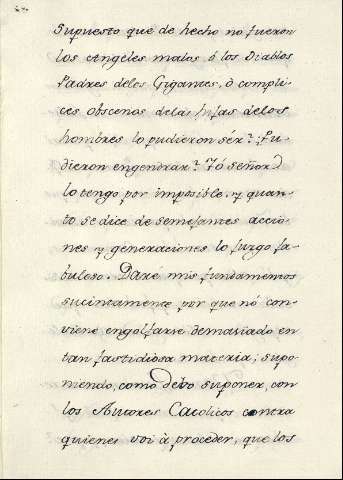 Supuesto que de hecho no fueron
los Angeles malos ô los Diablos
Padres delos Gigantes, ò compli-
ces obscenos delas hijas delos
hombres lo pudieron sér? Pu-
dieron engendrar? Yó señor
lo tengo por imposible. y quan-
to se dice de semejantes accio-
nes y generaciones lo juzgo fa-
buloso. Daré mis fundamentos
sucintamente por que nó con-
viene engolfarse demasiado en
tan fastidiosa materia; supo-
niendo, como debo suponer, con
los Autores Catolicos contra
quienes voi à proceder, que los